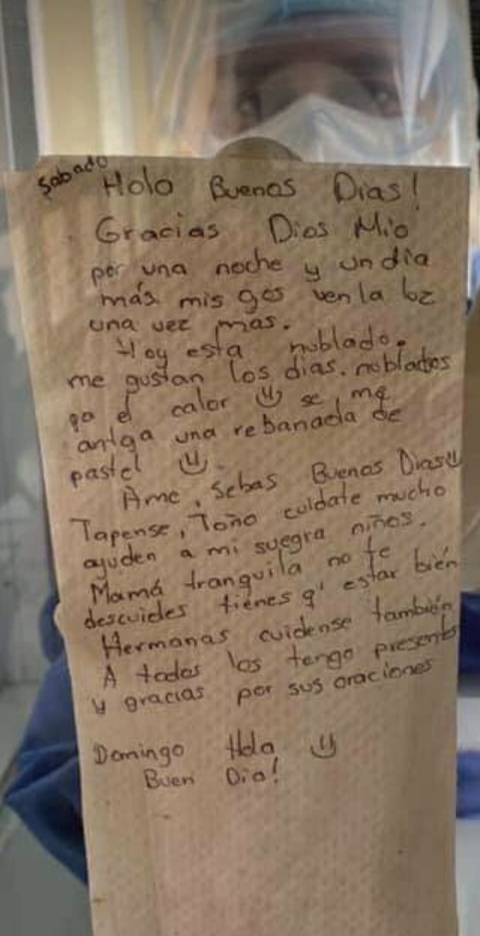 Sabado
Hola Buenos Dias!
Gracias Dios Mio
por una noche y un dia
más mis gos ven la loz
una vez mas.
Hoy esta nublado.
me gustan los dias. noblados
pa el calor se me
antga una rebanada de
pastel
Ame, Sebas Buenos Dias
Tapense, Toño cuidate mucho
ayuden a mi suegra niños.
Mamá tranquila no te
descuides tienes q' estar bién
Hermanas cuidense también
A todos los tengo presente
y gracias por sus oraciones
Domingo Hola
Buen Dia!